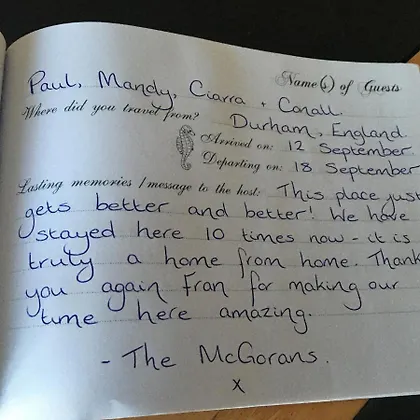 Name(s) of Guests
Paul, Mandy, Ciarra + Conall.
Where did you travel from? Durham, England
Arrived on: 12 September
Departing on: 18 September
Lasting memories / message to the host: This place just
gets better and better! We have
stayed here 10 times now - it is
truly a home from home. Thank
you again Fran for making our
time here amazing.
- The McGorans.
x